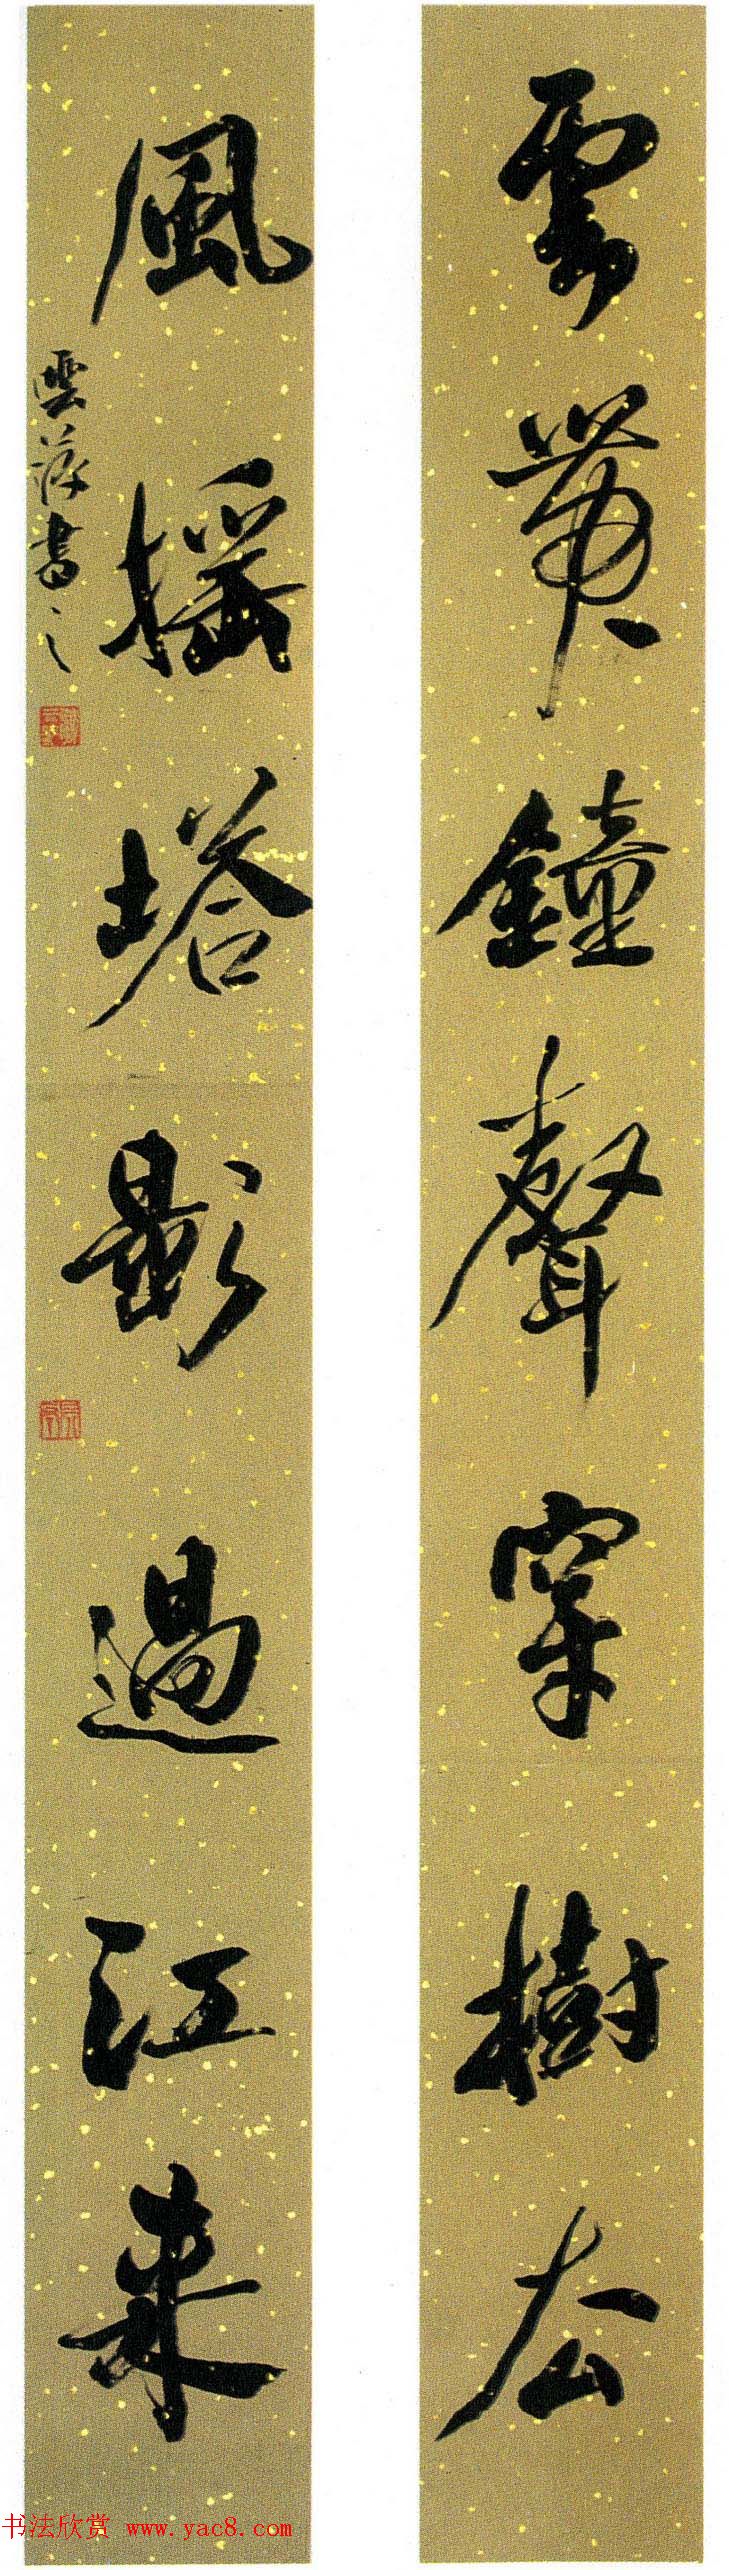 雲帶鐘聲穿樹去
風搖塔影過江来
雲萍書之
书法欣赏 www.yac8.com